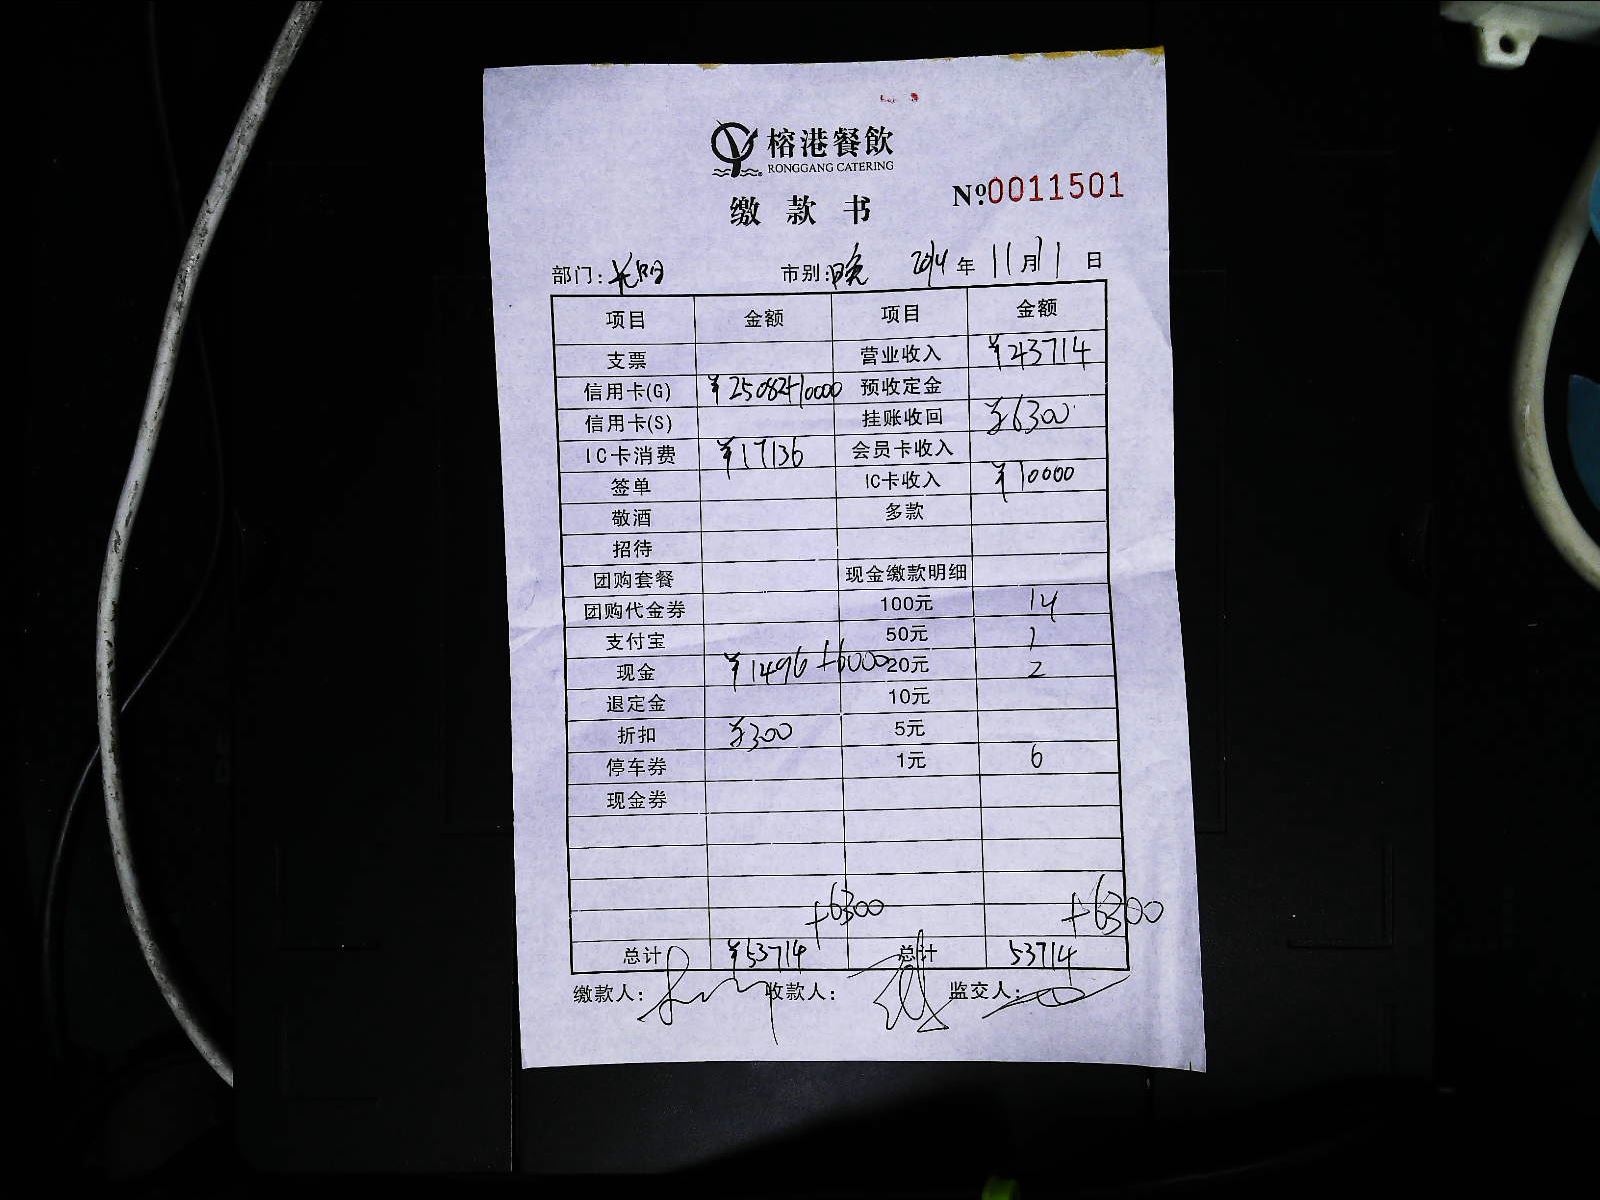 榕港餐飲
RONGGANG CATERING
缴款书
Nº:0011501
部门: 市别:晚 2014年11月11日
项目 金额 项目 金额
支票 营业收入 ¥43714
信用卡(G) ¥25082+10000 预收定金
信用卡(S) 挂账收回 ¥6300
IC卡消费 ¥17136 会员卡收入
签单 IC卡收入 ¥10000
敬酒 多款
招待
团购套餐 现金缴款明细
团购代金券 100元 14
支付宝 50元 1
现金 ¥1496+6000 20元 2
退定金 10元
折扣 ¥300 5元
停车券 1元 6
现金券
+6300 +6300
总计 ¥53714 总计 53714
缴款人: 收款人: 监交人: